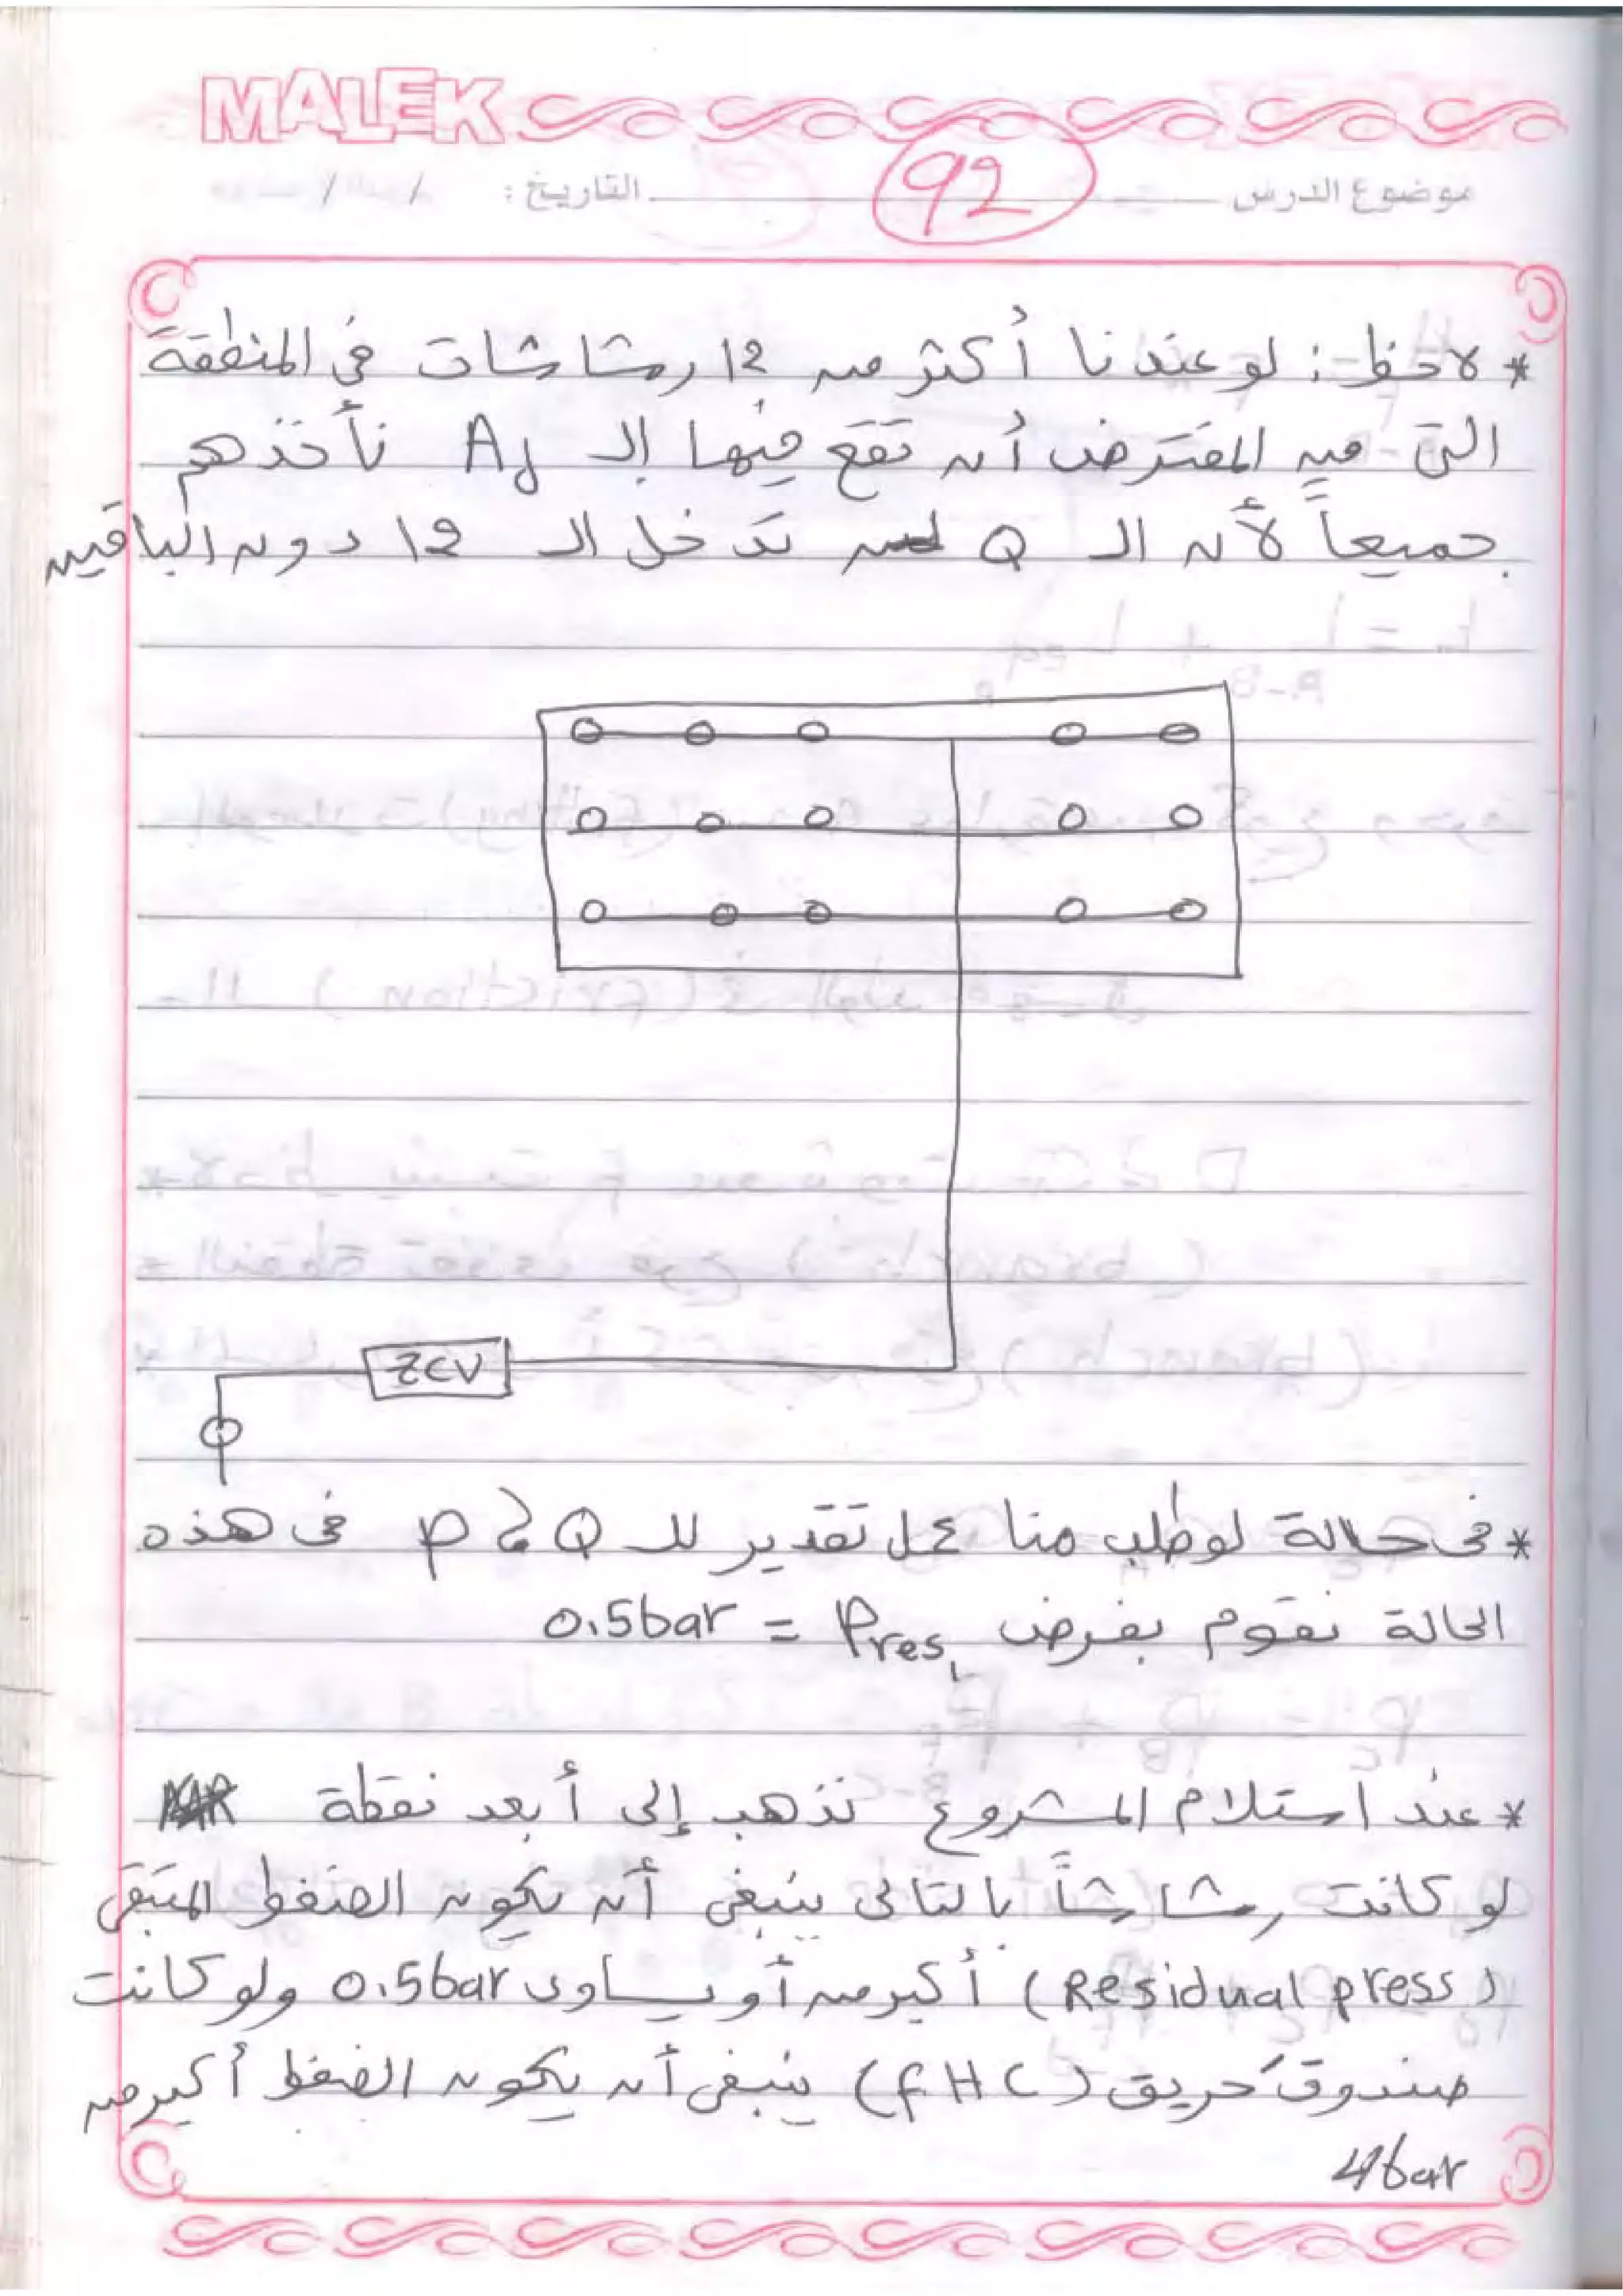 MALEK
موضوع الدرس 92 التاريخ: / /
* لاحظ: لو عندنا أكثر من 12 رشاشات في المنطقة
التى من المفترض أن تقع فيها الـ Ad نأخذهم
جميعاً لأن الـ Q لن تدخل الـ 12 دون الباقين
ZCV
* فى حالة لو طلب منا عمل تقدير للـ Q و P فى هذه
الحالة نقوم بفرض Pres = 0.5bar
* عند استلام المشروع نذهب إلى أبعد نقطة
لو كانت رشاشاً بالتالى ينبغى أن يكون الضغط المتبقى
(Residual press) أكبر من أو يساوى 0.5bar ولو كانت
صندوق حريق (FHC) ينبغى أن يكون الضغط أكبر من
4bar